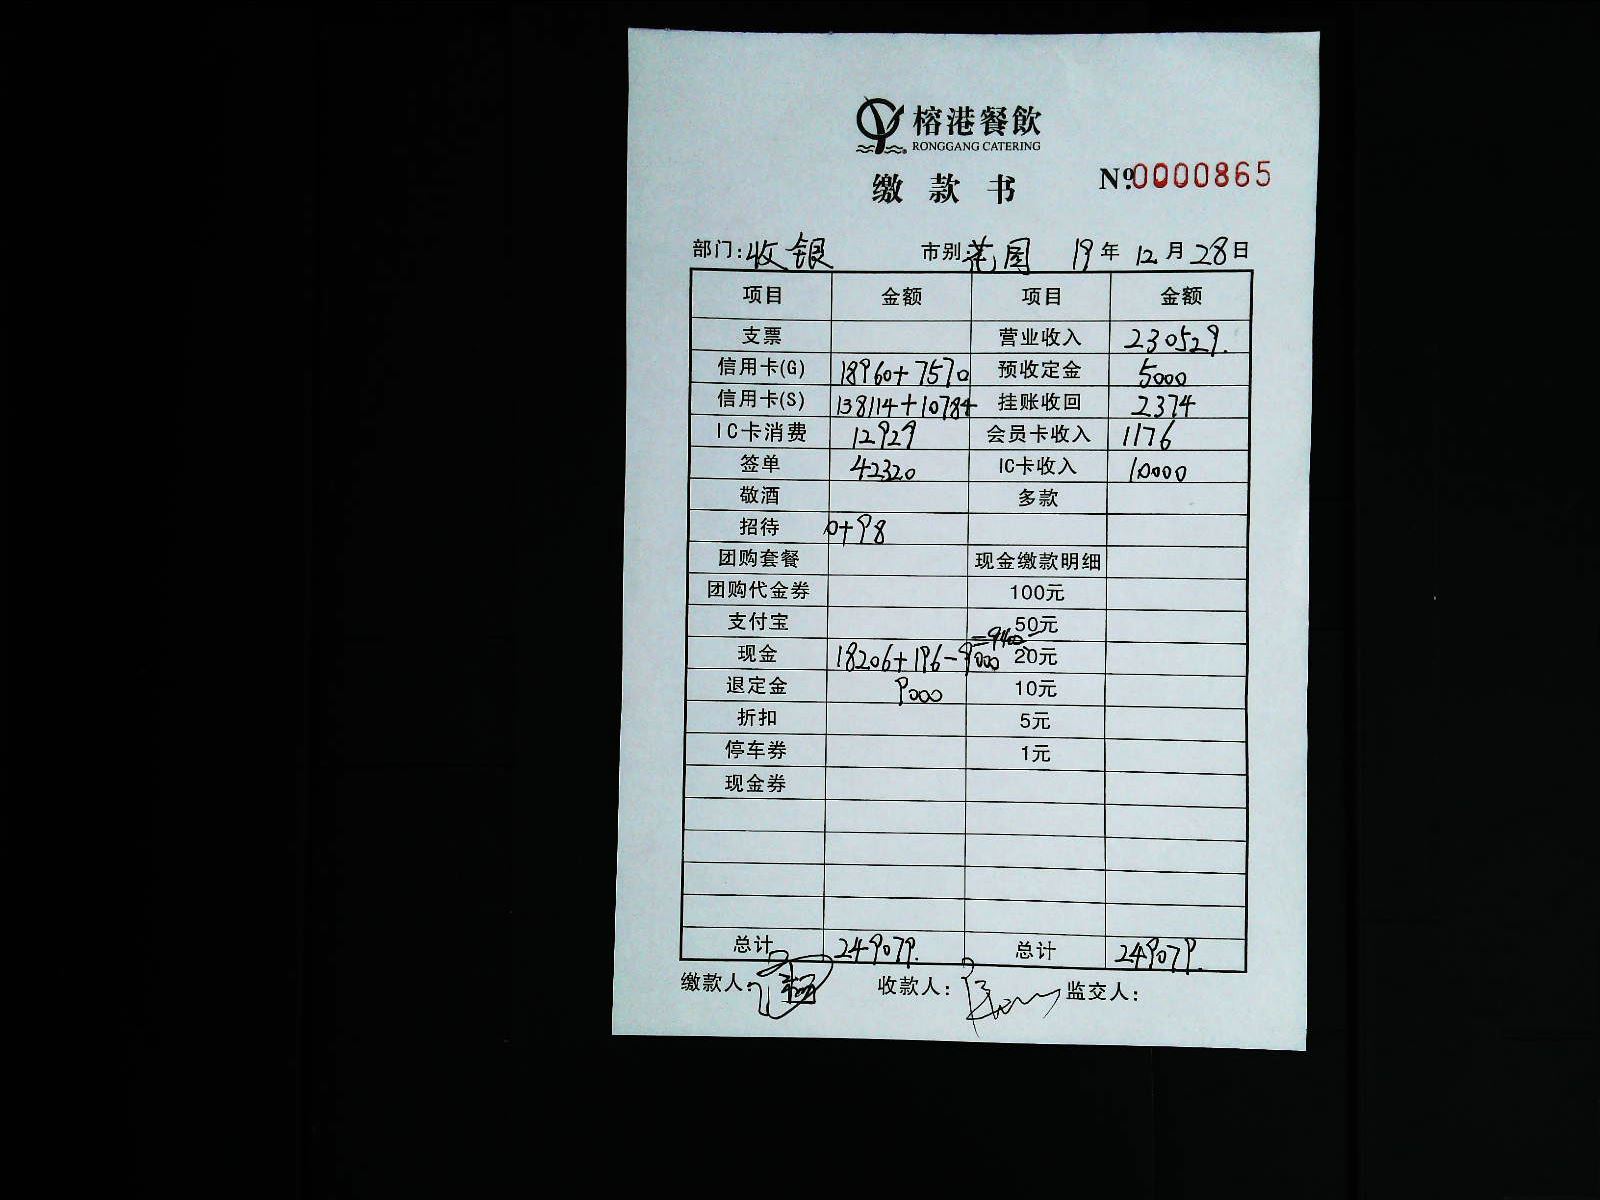 榕港餐飲
RONGGANG CATERING
缴款书 №0000865
部门:收银 市别:花园 19年12月28日
项目 金额 项目 金额
支票 营业收入 230529.
信用卡(G) 18960+7570 预收定金 5000
信用卡(S) 138114+10784 挂账收回 2374
IC卡消费 12929 会员卡收入 1176
签单 42320 IC卡收入 10000
敬酒 多款
招待 0+98
团购套餐 现金缴款明细
团购代金券 100元
支付宝 50元
=9402
现金 18206+196-9000 20元
退定金 9000 10元
折扣 5元
停车券 1元
现金券
总计 249079. 总计 249079.
缴款人: 收款人: 监交人: